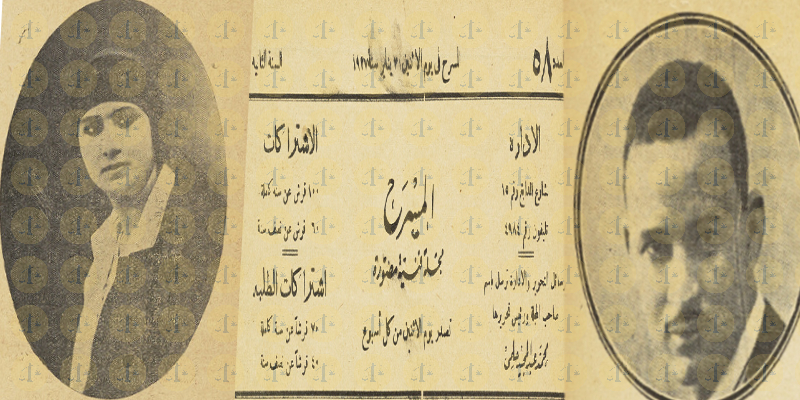 العدد ٥٨
المسرح في يوم الاثنين ٣١ يناير سنة ١٩٢٧
السنة الثانية
الادارة
شارع المدابغ رقم ١٥
تليفون رقم ٤٩٨٤
رسائل التحرير والادارة ترسل باسم
صاحب المجلة ورئيس تحريرها
محمد عبد المجيد حلمي
المسرح
مجلة فنية مصورة
تصدر يوم الاثنين من كل أسبوع
الاشتراكات
١٠٠ قرش عن سنة كاملة
٦٠ قرش عن نصف سنة
اشتراكات الطلبة
٧٥ قرشاً عن سنة كاملة
٤٠ قرشاً عن نصف سنة